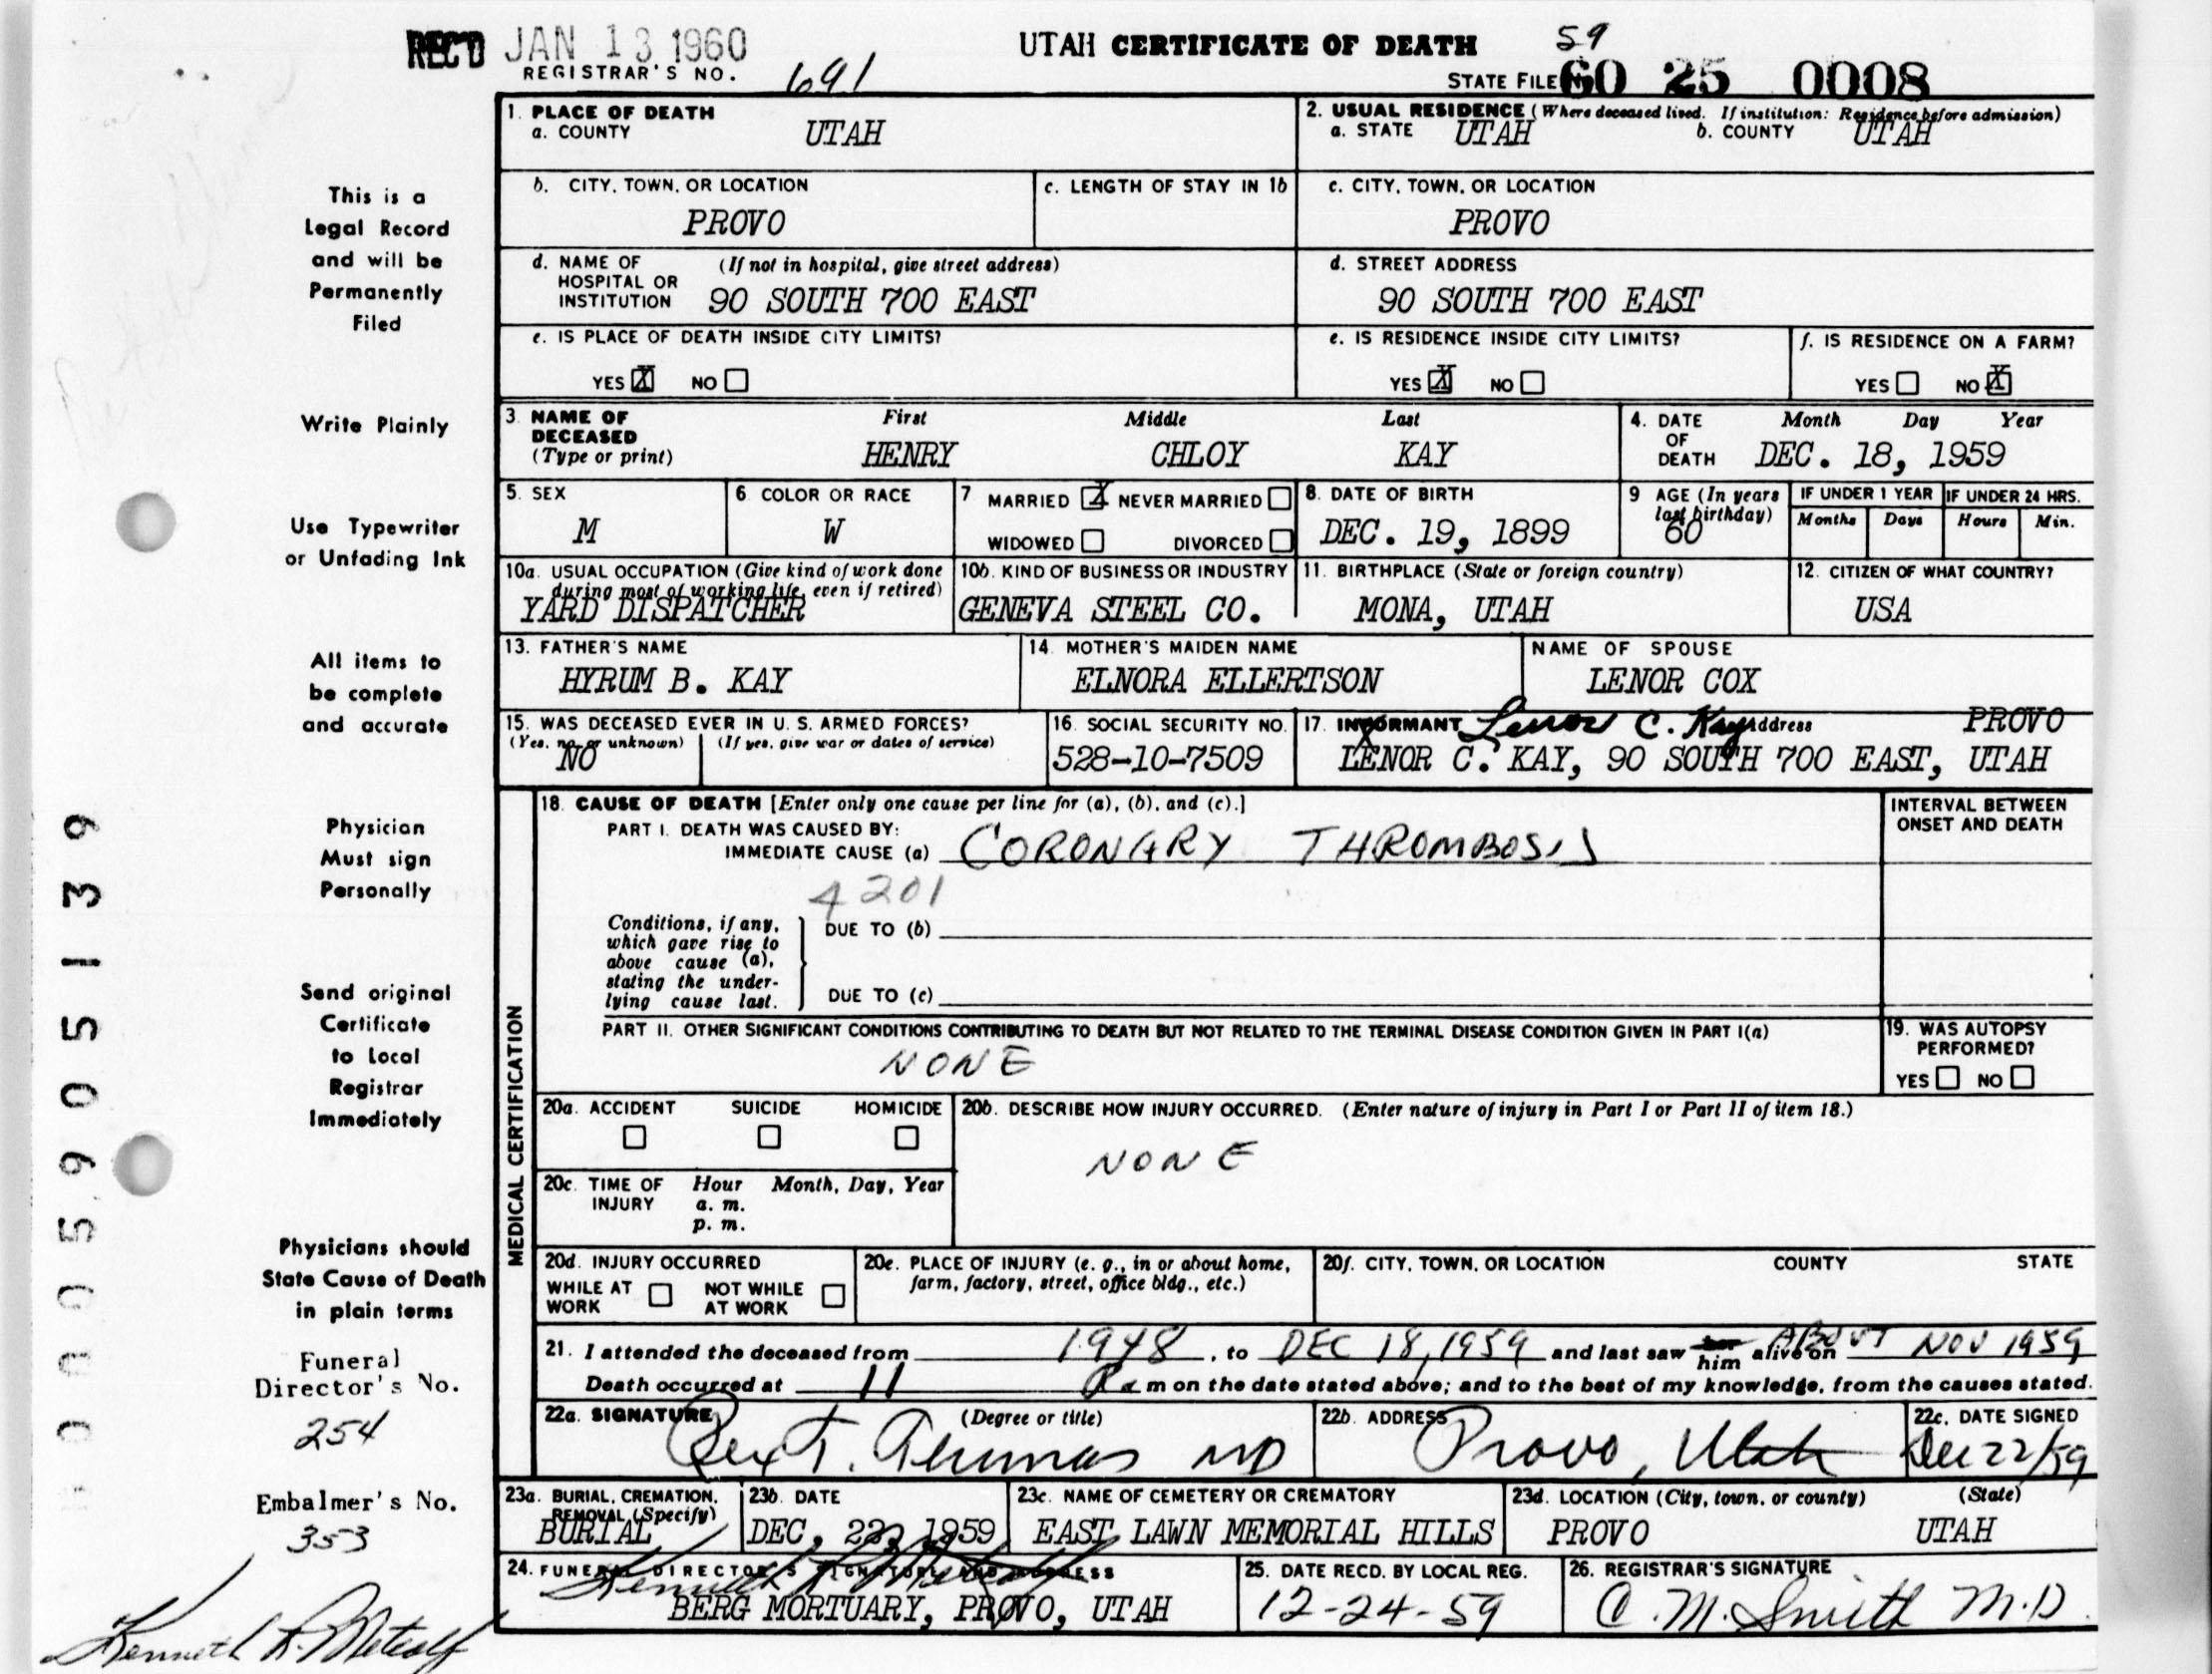 REC'D JAN 13 1960
UTAH CERTIFICATE OF DEATH 59
REGISTRAR'S NO. 691
STATE FILE 60 25 0008
1. PLACE OF DEATH
a. COUNTY UTAH
2. USUAL RESIDENCE (Where deceased lived. If institution: Residence before admission)
a. STATE UTAH b. COUNTY UTAH
b. CITY, TOWN, OR LOCATION
PROVO
c. LENGTH OF STAY IN 1b
c. CITY, TOWN, OR LOCATION
PROVO
d. NAME OF (If not in hospital, give street address)
HOSPITAL OR
INSTITUTION 90 SOUTH 700 EAST
d. STREET ADDRESS
90 SOUTH 700 EAST
e. IS PLACE OF DEATH INSIDE CITY LIMITS?
YES X NO
e. IS RESIDENCE INSIDE CITY LIMITS?
YES X NO
f. IS RESIDENCE ON A FARM?
YES NO X
3. NAME OF DECEASED (Type or print)
First Middle Last
HENRY CHLOY KAY
4. DATE OF DEATH
Month Day Year
DEC. 18, 1959
5. SEX
M
6. COLOR OR RACE
W
7 MARRIED X NEVER MARRIED
WIDOWED DIVORCED
8. DATE OF BIRTH
DEC. 19, 1899
9 AGE (In years last birthday)
60
IF UNDER 1 YEAR
Months Days
IF UNDER 24 HRS.
Hours Min.
10a. USUAL OCCUPATION (Give kind of work done
during most of working life, even if retired)
YARD DISPATCHER
10b. KIND OF BUSINESS OR INDUSTRY
GENEVA STEEL CO.
11. BIRTHPLACE (State or foreign country)
MONA, UTAH
12. CITIZEN OF WHAT COUNTRY?
USA
13. FATHER'S NAME
HYRUM B. KAY
14. MOTHER'S MAIDEN NAME
ELNORA ELLERTSON
NAME OF SPOUSE
LENOR COX
15. WAS DECEASED EVER IN U. S. ARMED FORCES?
(Yes, no, or unknown) (If yes, give war or dates of service)
NO
16. SOCIAL SECURITY NO.
528-10-7509
17. INFORMANT Lenor C. Kay Address PROVO
LENOR C. KAY, 90 SOUTH 700 EAST, UTAH
MEDICAL CERTIFICATION
18. CAUSE OF DEATH [Enter only one cause per line for (a), (b), and (c).]
PART I. DEATH WAS CAUSED BY:
IMMEDIATE CAUSE (a) CORONARY THROMBOSIS
4201
INTERVAL BETWEEN
ONSET AND DEATH
Conditions, if any,
which gave rise to
above cause (a),
stating the under-
lying cause last.
DUE TO (b)
DUE TO (c)
PART II. OTHER SIGNIFICANT CONDITIONS CONTRIBUTING TO DEATH BUT NOT RELATED TO THE TERMINAL DISEASE CONDITION GIVEN IN PART I(a)
NONE
19. WAS AUTOPSY
PERFORMED?
YES NO
20a. ACCIDENT SUICIDE HOMICIDE
20b. DESCRIBE HOW INJURY OCCURRED. (Enter nature of injury in Part I or Part II of item 18.)
NONE
20c. TIME OF INJURY Hour Month, Day, Year
a. m.
p. m.
20d. INJURY OCCURRED
WHILE AT WORK NOT WHILE AT WORK
20e. PLACE OF INJURY (e. g., in or about home,
farm, factory, street, office bldg., etc.)
20f. CITY, TOWN, OR LOCATION COUNTY STATE
21. I attended the deceased from 1948, to DEC 18, 1959 and last saw him alive on ABOUT NOV 1959
Death occurred at 11 P m on the date stated above; and to the best of my knowledge, from the causes stated.
22a. SIGNATURE (Degree or title)
Rex T. Thomas MD
22b. ADDRESS
Provo, Utah
22c. DATE SIGNED
Dec 22/59
23a. BURIAL, CREMATION,
REMOVAL (Specify)
BURIAL
23b. DATE
DEC. 22, 1959
23c. NAME OF CEMETERY OR CREMATORY
EAST LAWN MEMORIAL HILLS
23d. LOCATION (City, town, or county) (State)
PROVO UTAH
24. FUNERAL DIRECTOR'S SIGNATURE AND ADDRESS
Kenneth R. Metcalf
BERG MORTUARY, PROVO, UTAH
25. DATE RECD. BY LOCAL REG.
12-24-59
26. REGISTRAR'S SIGNATURE
C. M. Smith M.D.
This is a
Legal Record
and will be
Permanently
Filed
Write Plainly
Use Typewriter
or Unfading Ink
All items to
be complete
and accurate
Physician
Must sign
Personally
Send original
Certificate
to Local
Registrar
Immediately
Physicians should
State Cause of Death
in plain terms
Funeral
Director's No.
254
Embalmer's No.
353
Kenneth R. Metcalf
005905139